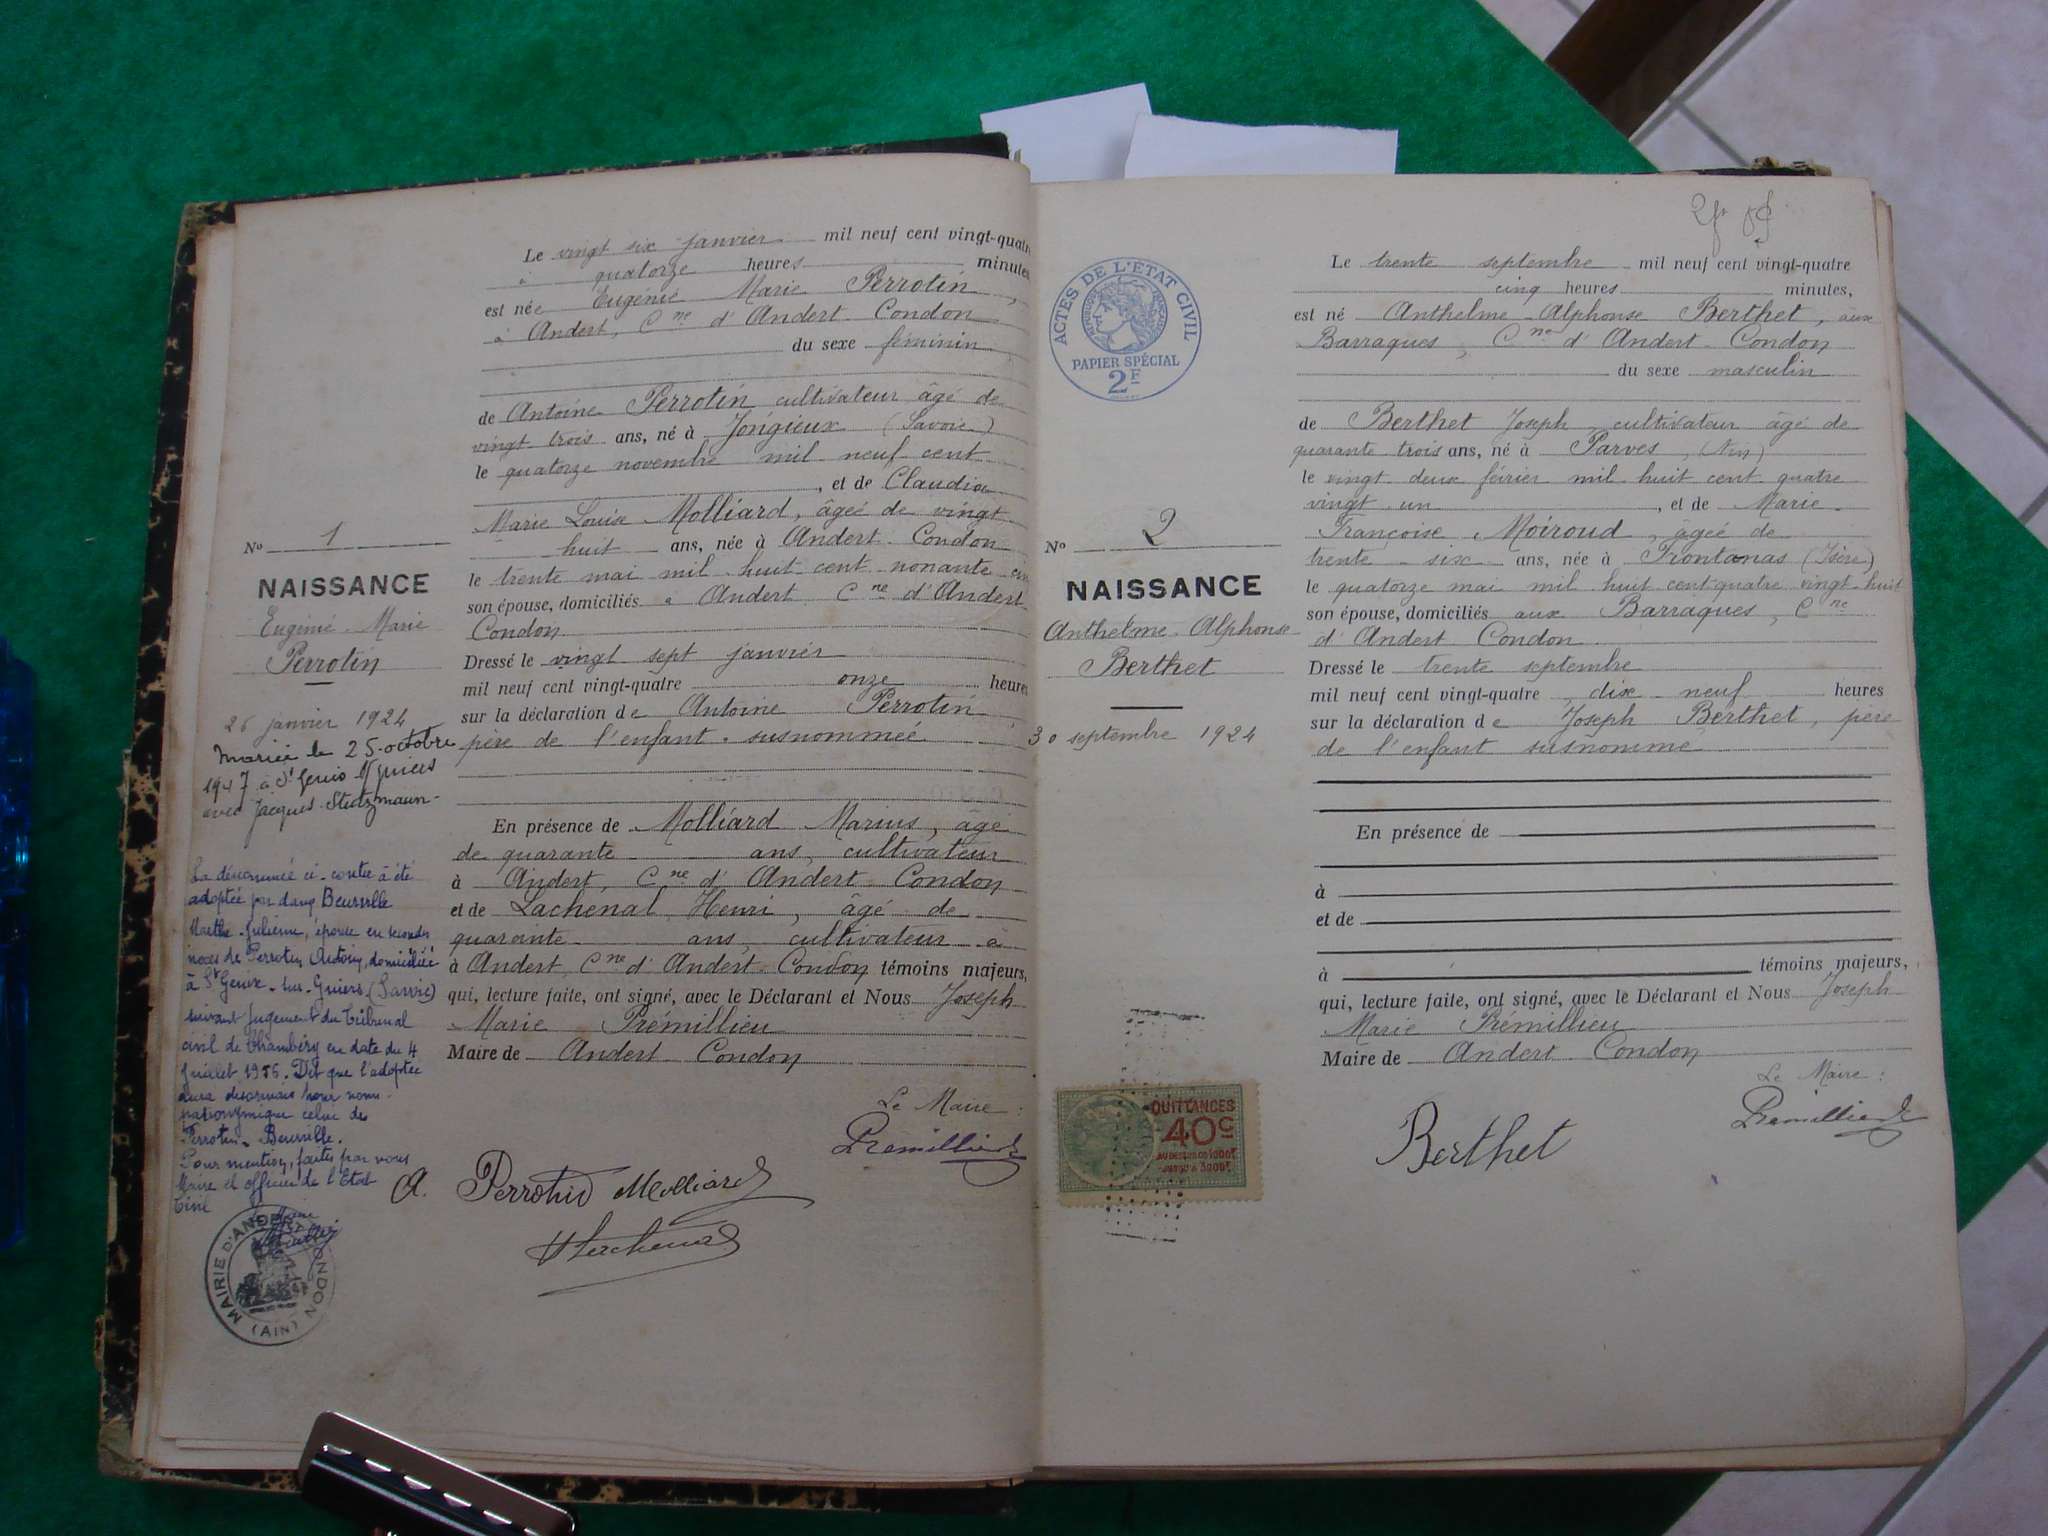 Le vingt six janvier mil neuf cent vingt-quatre
à quatorze heures minutes
est née Eugénie Marie Perrotin,
à Andert, Cne d'Andert-Condon
du sexe féminin
de Antoine Perrotin cultivateur âgé de
vingt trois ans, né à Jongieux (Savoie)
le quatorze novembre mil neuf cent
, et de Claudia
Marie Louise Molliard, âgée de vingt
huit ans, née à Andert-Condon
le trente mai mil huit cent nonante cin
son épouse, domiciliés à Andert Cne d'Andert
Condon
Dressé le vingt sept janvier
mil neuf cent vingt-quatre onze heures
sur la déclaration de Antoine Perrotin,
père de l'enfant susnommée
En présence de Molliard Marius, âgé
de quarante ans, cultivateur
à Andert, Cne d'Andert Condon
et de Lachenal Henri, âgé de
quarante ans, cultivateur à
à Andert, Cne d'Andert-Condon témoins majeurs,
qui, lecture faite, ont signé, avec le Déclarant et Nous Joseph
Marie Prémillieu
Maire de Andert-Condon
Le Maire :
Prémillieu
A. Perrotin Molliard
HLachenal
No 1
NAISSANCE
Eugénie-Marie
Perrotin
26 janvier 1924
Mariée le 25 octobre
1947 à St Genix s/Guiers
avec Jacques Stutzmann-
La dénommée ci-contre à été
adoptée par dame Beurville
Marthe-Julienne, épouse en secondes
noces de Perrotin Antoine, domiciliée
à St Genix-sur-Guiers (Savoie)
suivant jugement du Tribunal
civil de Chambéry en date du 4
Juillet 1956. Dit que l'adoptée
aura désormais pour nom
patronymique celui de
Perrotin-Beurville.
Pour mention, faites par nous
Maire et officier de l'Etat
Civil
Le Maire
MAIRIE D'ANDERT CONDON
(AIN)
ACTES DE L'ÉTAT CIVIL
RÉPUBLIQUE FRANÇAISE
PAPIER SPÉCIAL
2F
Le trente septembre mil neuf cent vingt-quatre
cinq heures minutes,
est né Anthelme-Alphonse Berthet, aux
Barraques, Cne d'Andert-Condon
du sexe masculin
de Berthet Joseph cultivateur âgé de
quarante trois ans, né à Parves, (Ain)
le vingt deux février mil huit cent quatre
vingt un, et de Marie
Françoise Moiroud, âgée de
trente-six ans, née à Frontonas (Isère)
le quatorze mai mil huit cent quatre vingt-huit
son épouse, domiciliés aux Barraques, Cne
d'Andert Condon
Dressé le trente septembre
mil neuf cent vingt-quatre, dix-neuf heures
sur la déclaration de Joseph Berthet, père
de l'enfant susnommé
En présence de
à
et de
à témoins majeurs,
qui, lecture faite, ont signé, avec le Déclarant et Nous Joseph
Marie Prémillieu
Maire de Andert-Condon
Le Maire :
Prémillieu
Berthet
No 2
NAISSANCE
Anthelme-Alphonse
Berthet
30 septembre 1924
QUITTANCES
40c
AU DESSUS DE 1000F
JUSQU'A 3000F